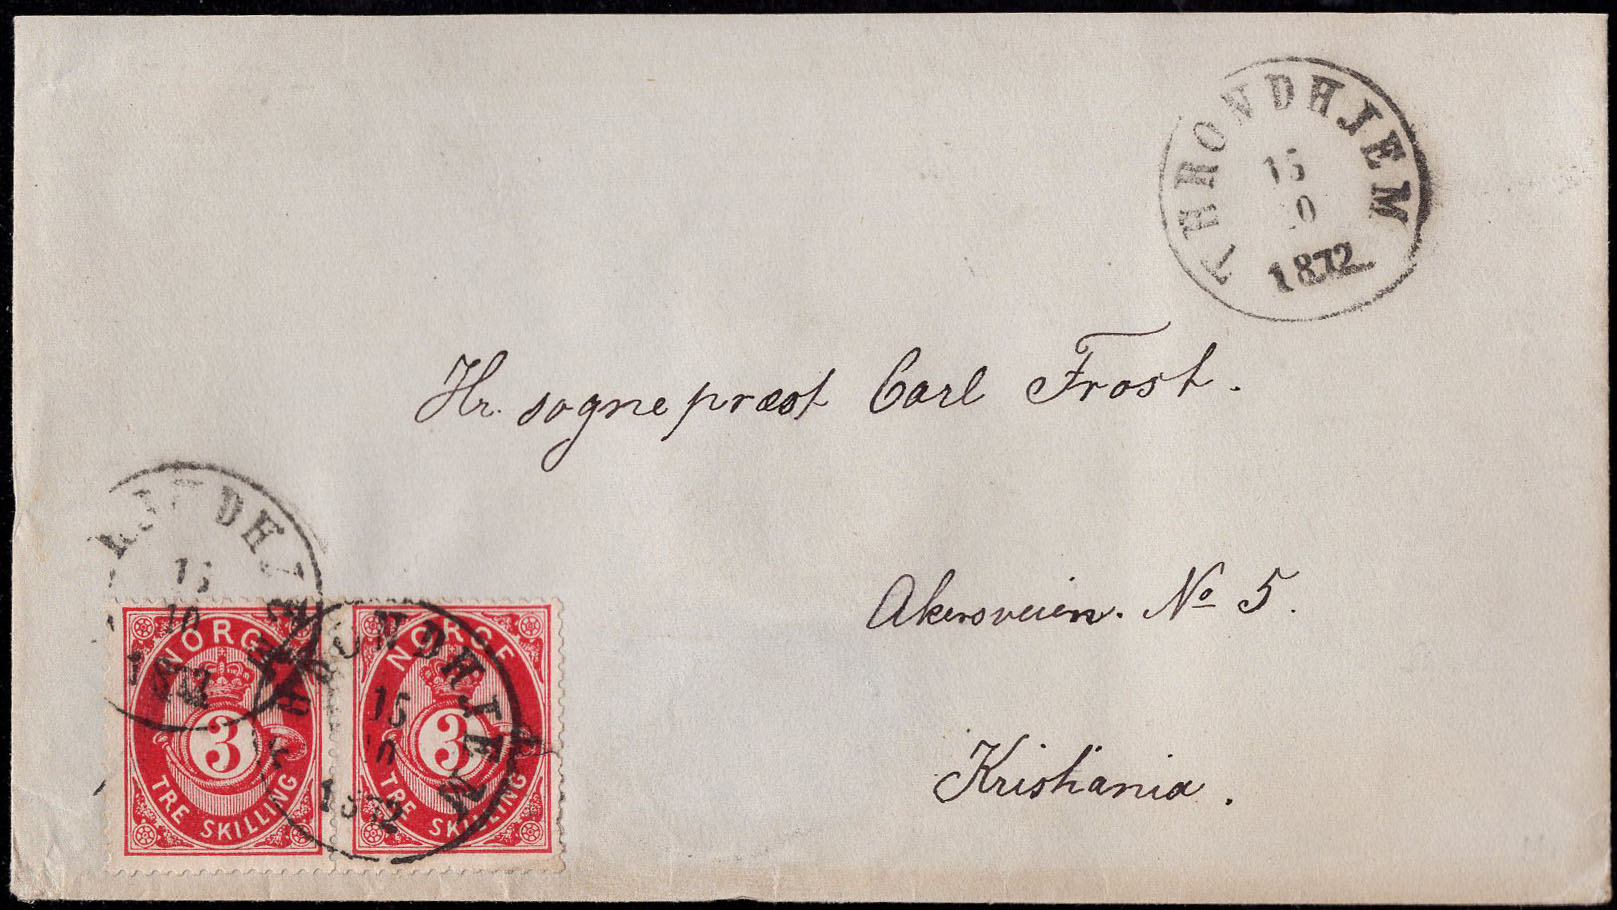 THRONDHJEM
15
10
1872
Hr. sognepræst Carl Frost.
Akersveien. No 5.
Kristiania.
THRONDHJEM
15
10
1872
NORGE
3
TRE SKILLING
THRONDHJEM
15
10
1872
NORGE
3
TRE SKILLING